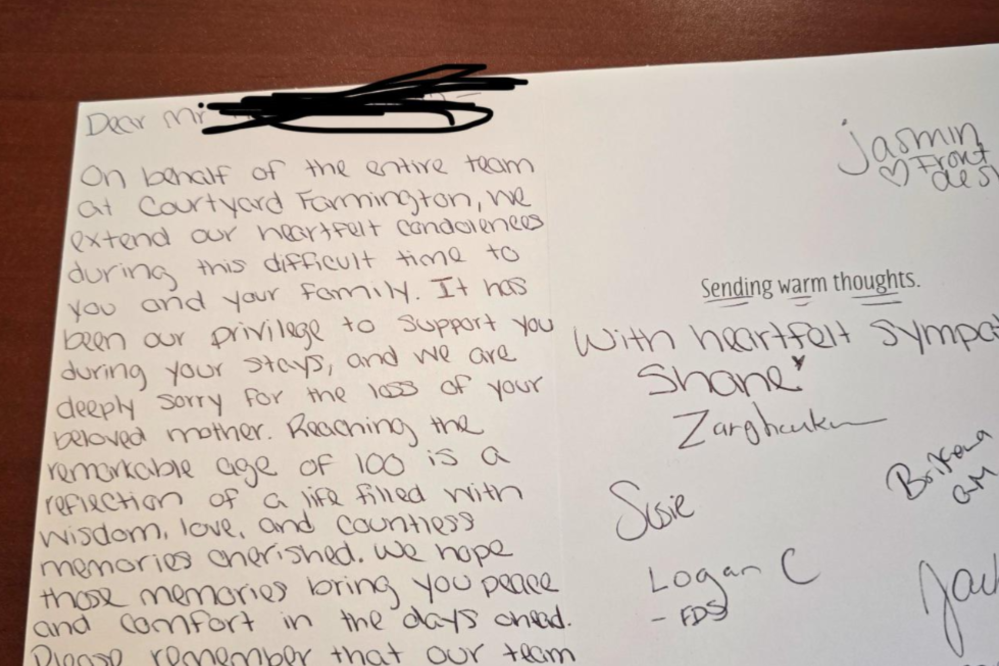 Dear Mr
On behalf of the entire team
at Courtyard Farmington, we
extend our heartfelt condolences
during this difficult time to
you and your family. It has
been our privilege to support you
during your stays, and we are
deeply sorry for the loss of your
beloved mother. Reaching the
remarkable age of 100 is a
reflection of a life filled with
wisdom, love, and countless
memories cherished. We hope
those memories bring you peace
and comfort in the days ahead.
Please remember that our team
Jasmin
♡ Front
des
Sending warm thoughts.
With heartfelt sympa
Shane
Susie
Logan C
- FDS